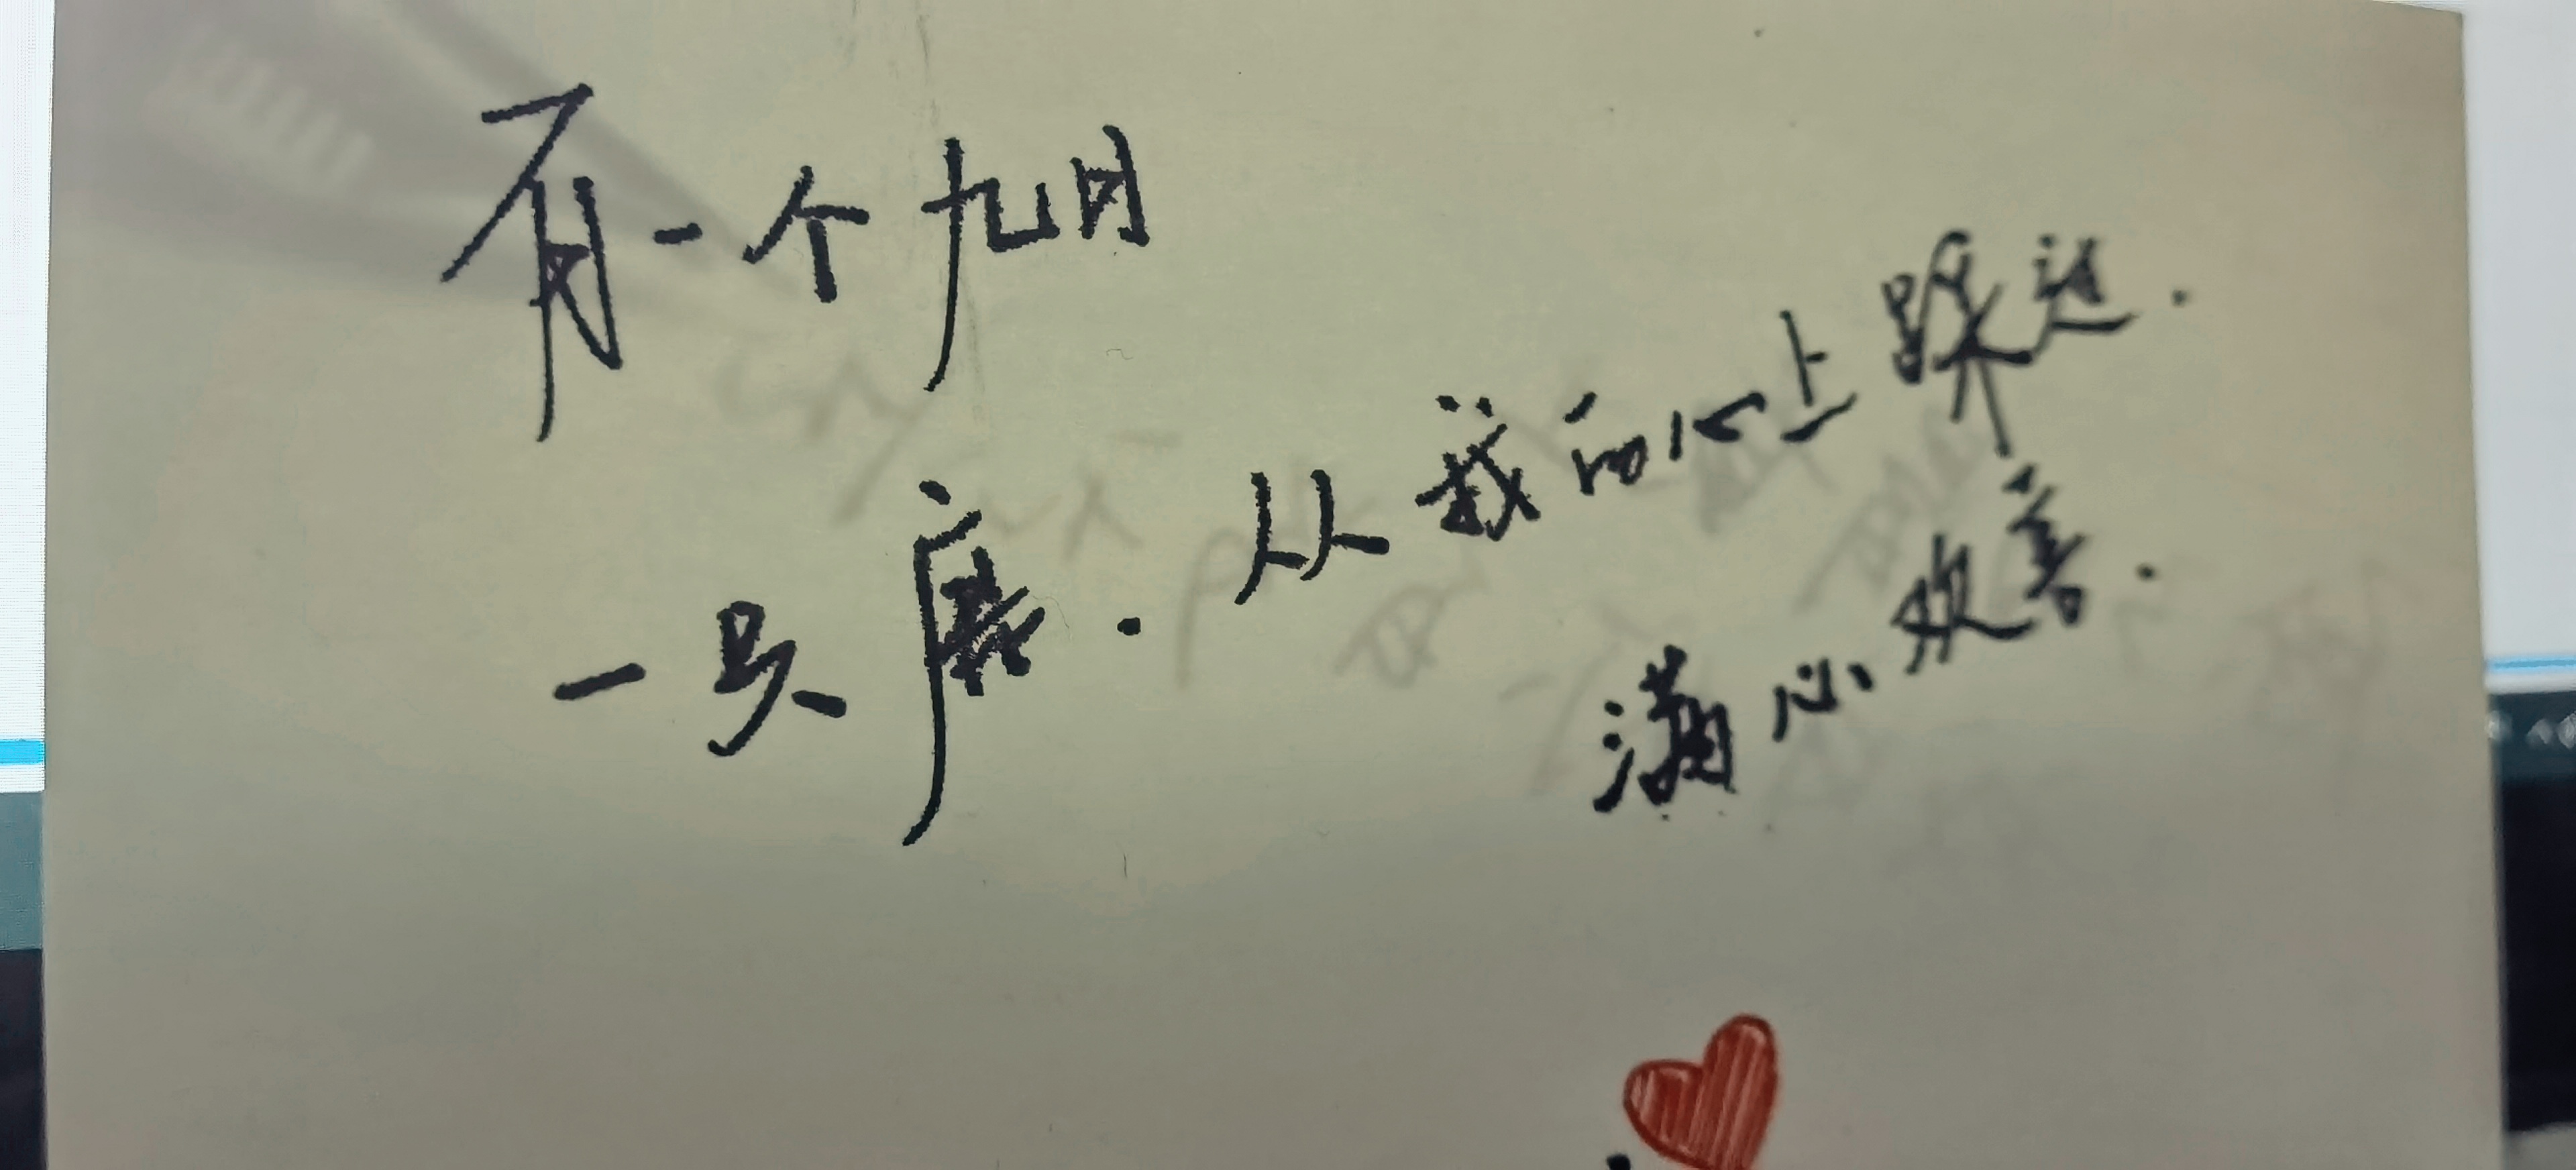 有一个九月
一只鹿.从我的心上跳过.
满心欢喜.